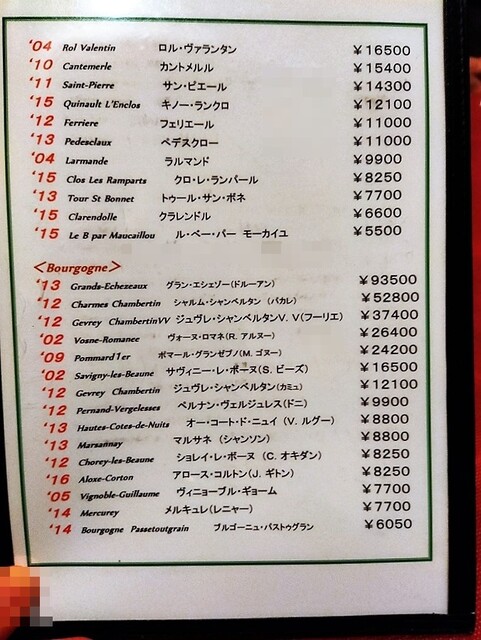 '04 Rol Valentin ロル・ヴァランタン ￥16500
'10 Cantemerle カントメルル ￥15400
'11 Saint-Pierre サン・ピエール ￥14300
'15 Quinault L'Enclos キノー・ランクロ ￥12100
'12 Ferriere フェリエール ￥11000
'13 Pedesclaux ペデスクロー ￥11000
'04 Larmande ラルマンド ￥9900
'15 Clos Les Ramparts クロ・レ・ランパール ￥8250
'13 Tour St Bonnet トゥール・サン・ボネ ￥7700
'15 Clarendolle クラレンドル ￥6600
'15 Le B par Maucaillou ル・ベー・パー モーカイユ ￥5500
＜Bourgogne＞
'13 Grands-Echezeaux グラン・エシェゾー(ドルーアン) ￥93500
'12 Charmes Chambertin シャルム・シャンベルタン (パカレ) ￥52800
'12 Gevrey ChambertinVV ジュヴレ・シャンベルタンV. V(フーリエ) ￥37400
'02 Vosne-Romanee ヴォーヌ・ロマネ(R. アルヌー) ￥26400
'09 Pommard1er ポマール・グランゼブノ(M. ゴヌー) ￥24200
'02 Savigny-les-Beaune サヴィニー・レ・ボーヌ(S. ビーズ) ￥16500
'12 Gevrey Chambertin ジュヴレ・シャンベルタン(カミュ) ￥12100
'12 Pernand-Vergelesses ペルナン・ヴェルジュレス(ドニ) ￥9900
'13 Hautes-Cotes-de-Nuits オー・コート・ド・ニュイ (V. ルグー) ￥8800
'13 Marsannay マルサネ (シャンソン) ￥8800
'12 Chorey-les-Beaune ショレイ・レ・ボーヌ (C. オキダン) ￥8250
'16 Aloxe-Corton アロース・コルトン(J. ギトン) ￥8250
'05 Vignoble-Guillaume ヴィニョーブル・ギョーム ￥7700
'14 Mercurey メルキュレ(レニャー) ￥7700
'14 Bourgogne Passetoutgrain ブルゴーニュ・パストゥグラン ￥6050